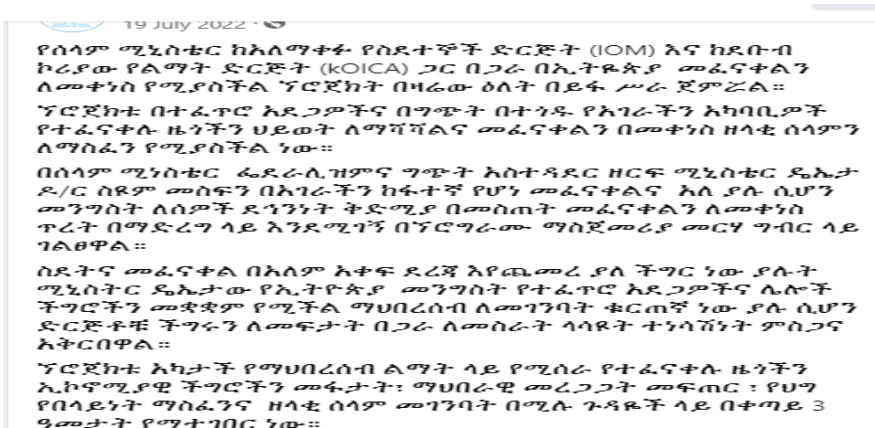 19 July 2022 ·
የሰላም ሚኒስቴር ከአለማቀፉ የስደተኞች ድርጅት (IOM) እና ከደቡብ
ኮሪያው የልማት ድርጅት (kOICA) ጋር በጋራ በኢትዬጵያ መፈናቀልን
ለመቀነስ የሚያስችል ፕሮጀክት በዛሬው ዕለት በይፋ ሥራ ጀምሯል።
ፕሮጀክቱ በተፈጥሮ አደጋዎችና በግጭት በተጎዱ የአገራችን አካባቢዎች
የተፈናቀሉ ዜጎችን ህይወት ለማሻሻልና መፈናቀልን በመቀነስ ዘላቂ ሰላምን
ለማስፈን የሚያስችል ነው።
በሰላም ሚነስቴር ፌደራሊዝምና ግጭት አስተዳደር ዘርፍ ሚኒስቴር ዴኤታ
ዶ/ር ስዩም መስፍን በአገራችን ከፋተኛ የሆነ መፈናቀልና አለ ያሉ ሲሆን
መንግስት ለሰዎች ደኅንነት ቅድሚያ በመስጠት መፈናቀልን ለመቀነስ
ጥረት በማድረግ ላይ እንደሚገኝ በፕሮግራሙ ማስጀመሪያ መርሃ ግብር ላይ
ገልፀዋል።
ስደትና መፈናቀል በአለም አቀፍ ደረጃ እየጨመረ ያለ ችግር ነው ያሉት
ሚኒስትር ዴኤታው የኢትዮጵያ መንግስት የተፈጥሮ አደጋዎችና ሌሎች
ችግሮችን መቋቋም የሚችል ማህበረሰብ ለመገንባት ቁርጠኛ ነው ያሉ ሲሆን
ድርጅቶቹ ችግሩን ለመፍታት በጋራ ለመስራት ላሳዩት ተነሳሽነት ምስጋና
አቅርበዋል።
ፕሮጀክቱ አካታች የማህበረሰብ ልማት ላይ የሚሰራ የተፈናቀሉ ዜጎችን
ኢኮኖሚያዊ ችግሮችን መፋታት፣ ማህበራዊ መረጋጋት መፍጠር ፣ የህግ
የበላይነት ማስፈንና ዘላቂ ሰላም መገንባት በሚሉ ጉዳዬች ላይ በቀጣይ 3
ዓመታት የሚተገበር ነው።